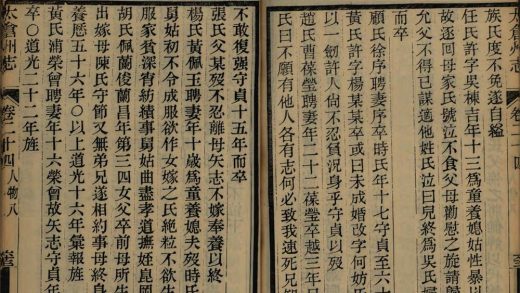 太倉州志
族氏度不免遂自縊
任氏許字吳棟吉年十三爲童養媳姑性暴以
故逐回母家氏號泣不食父母勸慰之旋請歸
允父不得已謀適他姓氏泣曰兒終爲吳氏婦
而卒
顧氏徐序聘妻序卒時氏年十七守貞至六十
氏許字楊某某卒或曰未成婚改字何妨氏
以一劒許人尙不忍負況身乎守貞以歿
趙氏曹葆瑩聘妻年二十二葆瑩卒越三年
氏曰不願有他人各有志何必致我速死兄
不敢復強守貞十五年而卒
張氏父某歿不忍離母矢志不嫁奉養以終
楊氏黃佩玉聘妻年十歲爲童養媳夫歿時氏
舅姑初不令成服欲作女嫁之氏絶粒不欲生
服家貧深宵紡績事舅姑曲盡孝道撫姪崑岡
養五十六年○以上道光十六年彙報旌
胡氏佩蘭俊蘭昌年第三四女父卒前母所生
出嫁母陳氏守節又無弟兄遂相約事母終身
黃氏浦榮曾聘妻年十六榮曾故矢志守貞
卒○道光二十二年旌
太倉州志 卷二十四 人物八